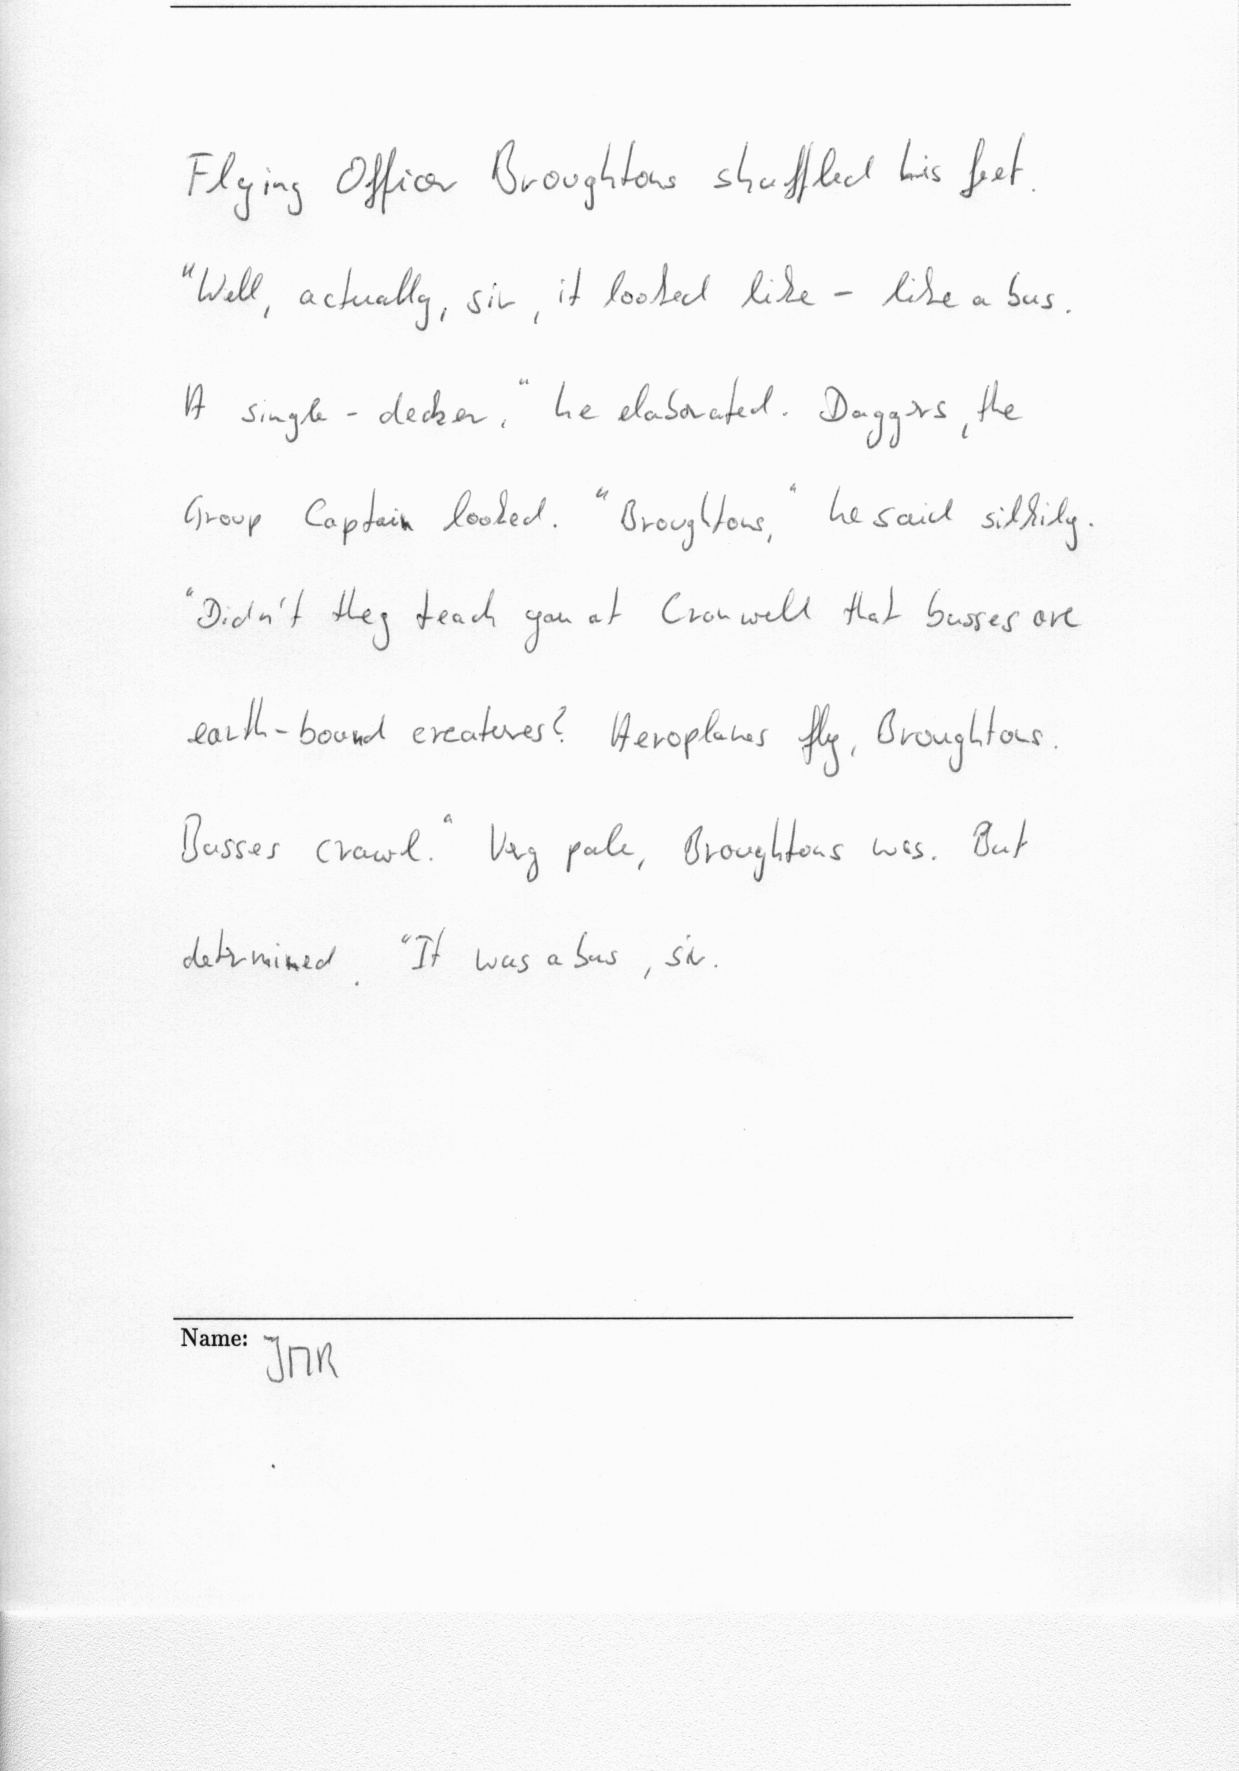 Flying Officer Broughtons shuffled his feet.
"Well, actually, sir, it looked like - like a bus.
A single-decker," he elaborated. Daggers, the
Group Captain looked. "Broughtons," he said silkily.
"Didn't they teach you at Cranwell that busses are
earth-bound creatures? Aeroplanes fly, Broughtons.
Busses crawl." Very pale, Broughtons was. But
determined. "It was a bus, sir.
Name: JMR